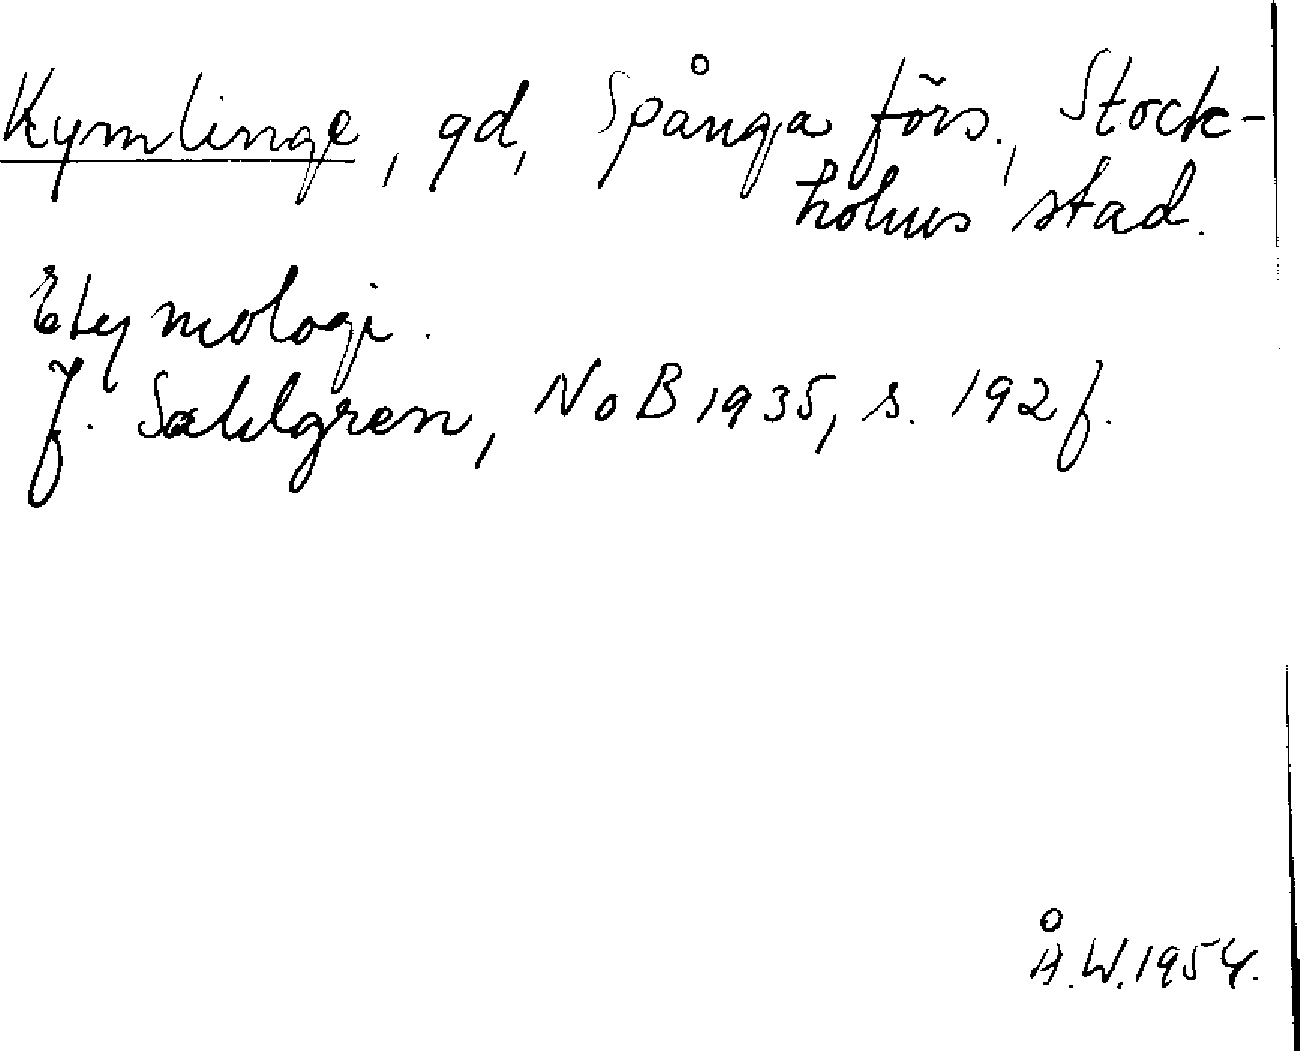 Kymlinge, gd, Spånga förs., Stock-
holms stad.
Etymologi.
J. Sahlgren, NoB 1935, s. 192 f.
Å.W. 1954.